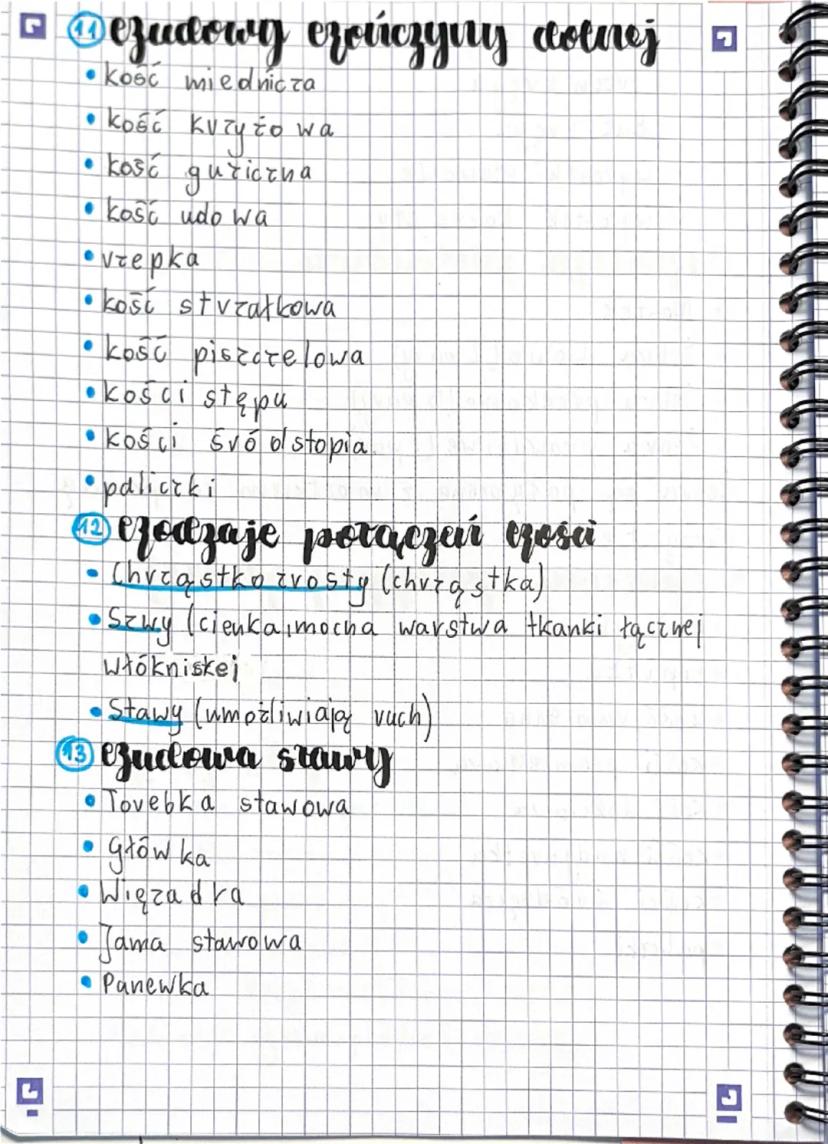 11 Budowy kończyny dolnej
• kość miednicza
• kość krzyżowa
• kość guziczna
• kość udowa
• rzepka
• kość strzałkowa
• kość piszczelowa
• kości stępu
• kości śródstopia
• paliczki
12 Rodzaje połączeń kości
• Chrząstkozrosty (chrząstka)
• Szwy (cienka, mocna warstwa tkanki łącznej
włókniskej
• Stawy (umożliwiają ruch)
13 Budowa stawy
• Torebka stawowa
• główka
• Więzadra
• Jama stawowa
• Panewka